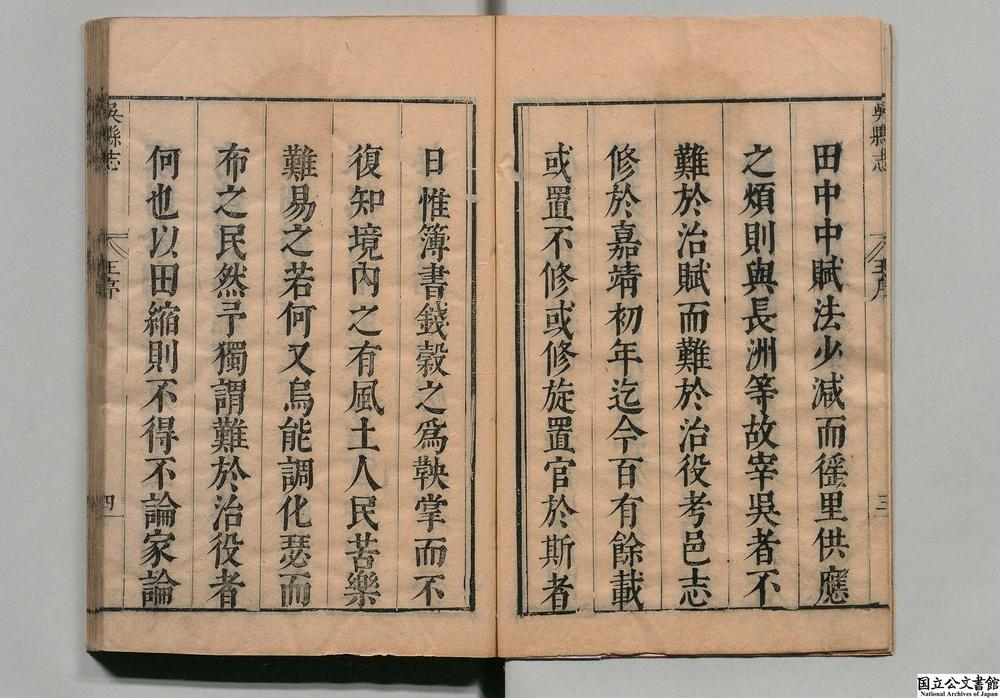 吳縣志
王序
三
田中中賦法少減而徭里供應
之煩則與長洲等故宰吳者不
難於治賦而難於治役考邑志
修於嘉靖初年迄今百有餘載
或置不修或修旋置官於斯者
日惟簿書錢穀之爲鞅掌而不
復知境內之有風土人民苦樂
難易之若何又烏能調化瑟而
布之民然予獨謂難於治役者
何也以田縮則不得不論家論
吳縣志
王序
四
国立公文書館
National Archives of Japan